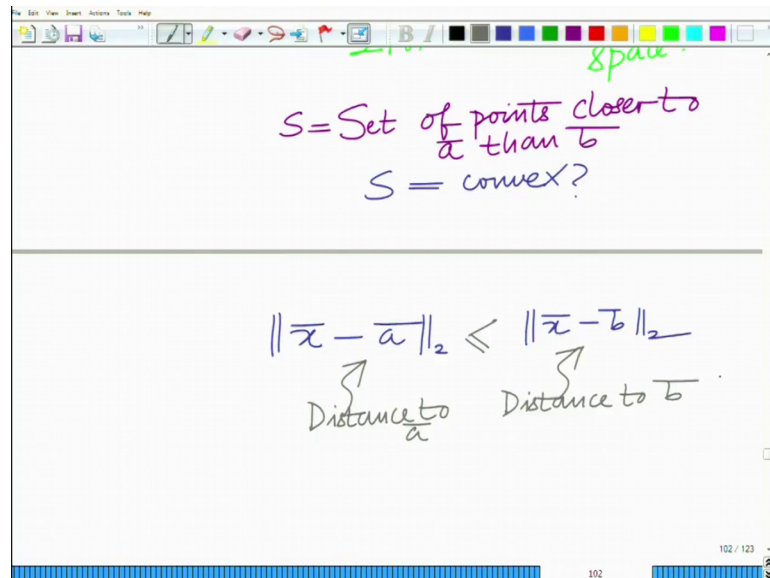 File Edit View Insert Actions Tools Help
B I
space.
S = Set of points closer to
a̅ than b̅
S = convex?
‖x̅ − a̅‖₂ ⩽ ‖x̅ − b̅‖₂
Distance to a̅
Distance to b̅
102 / 123
102